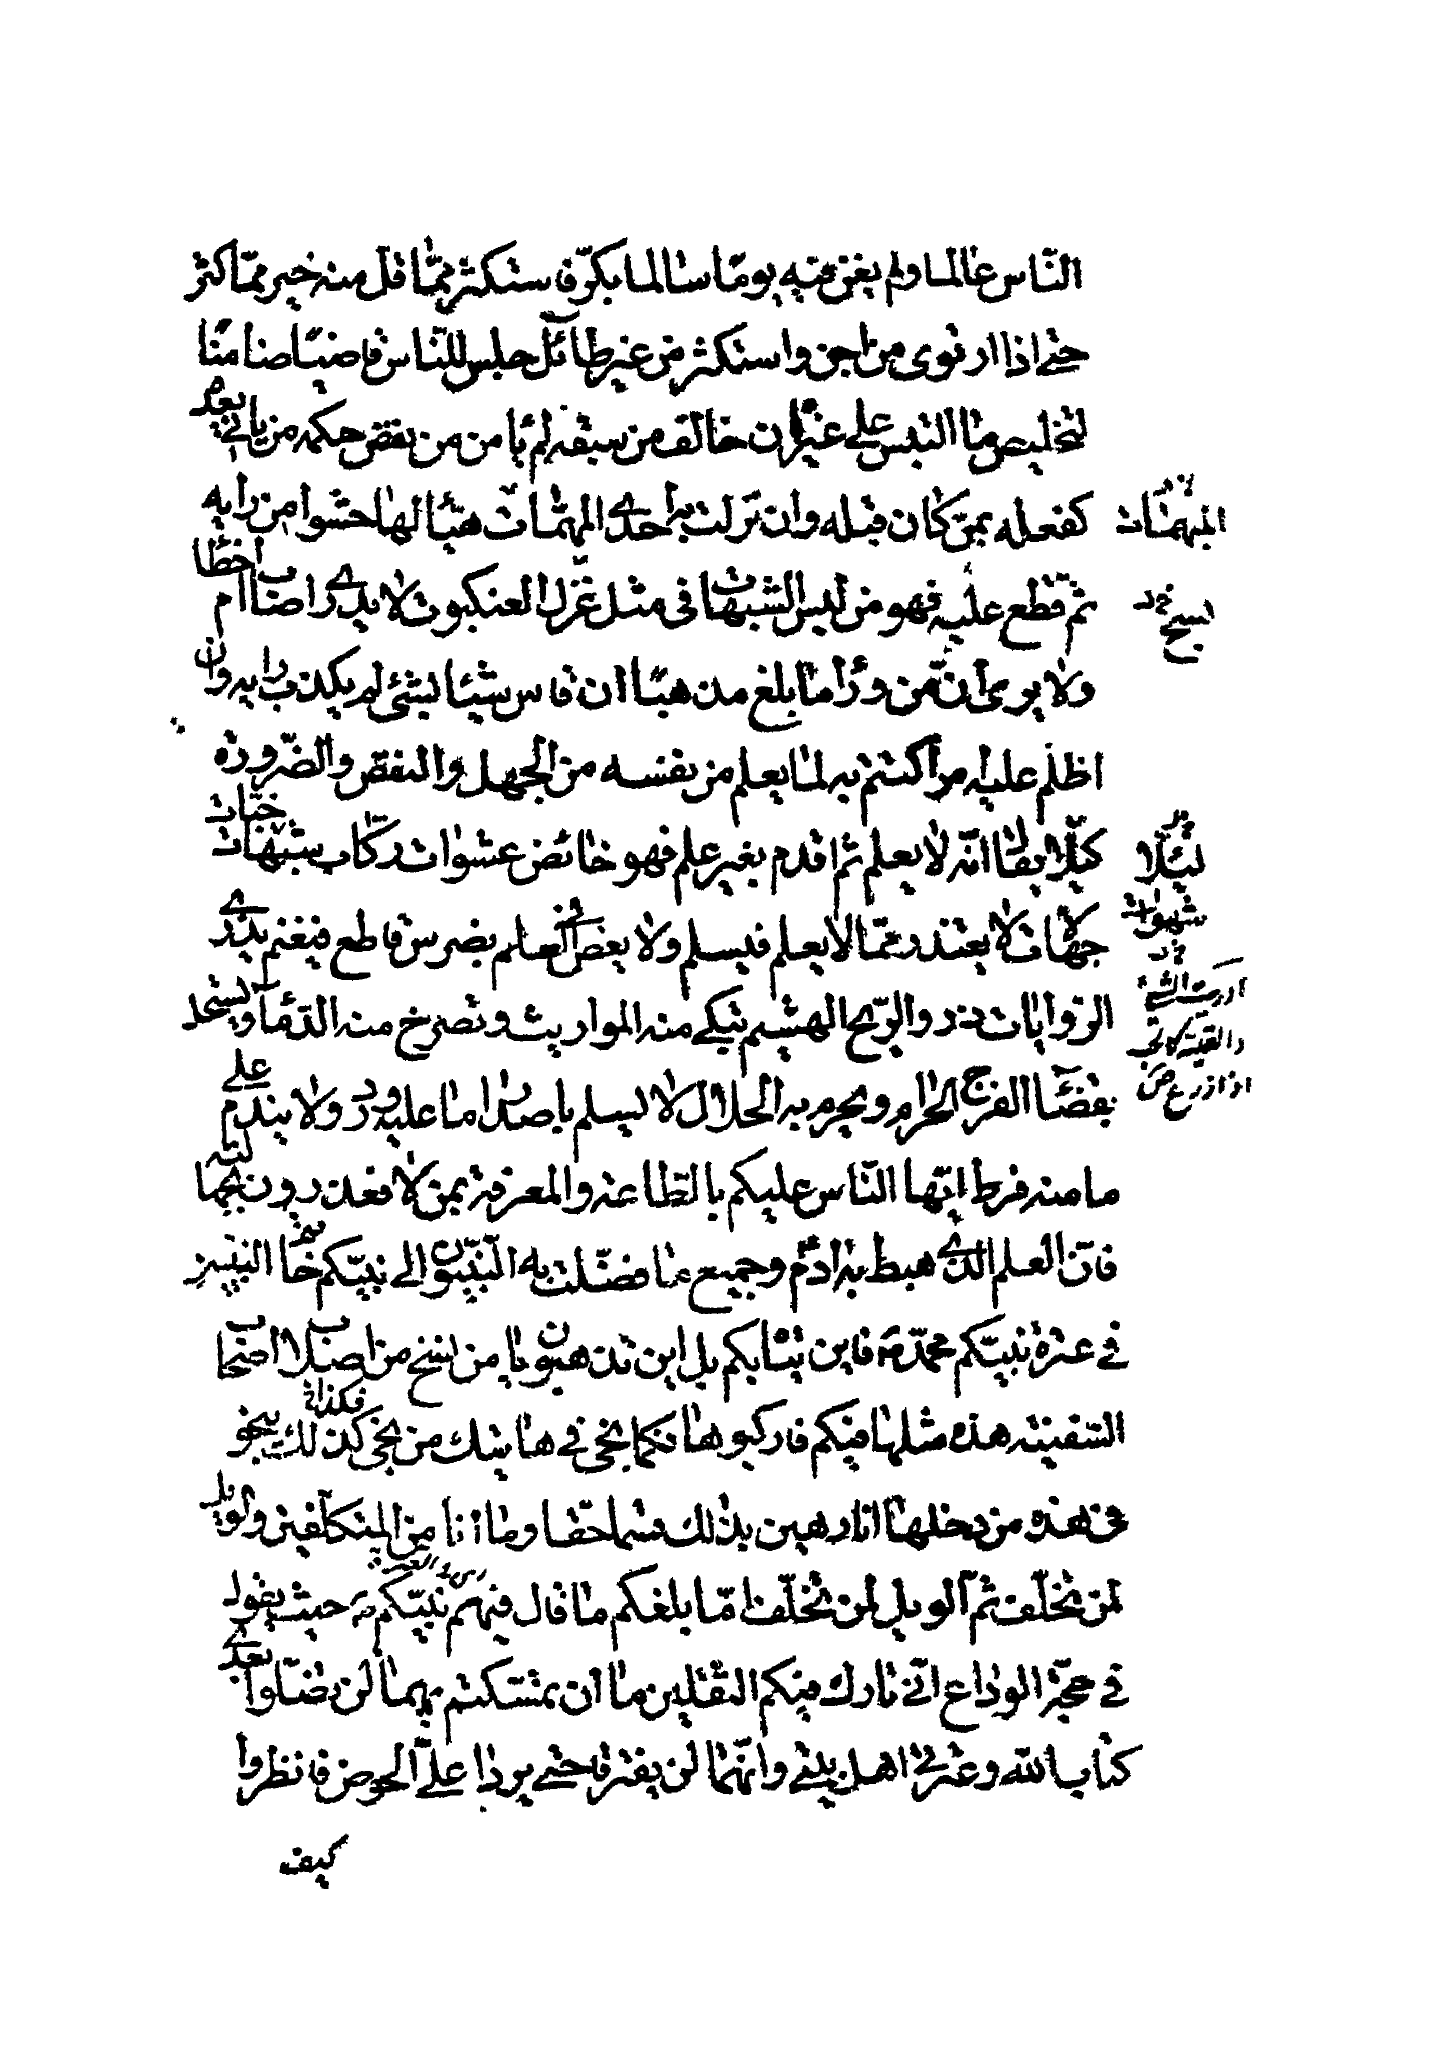 الناس عالما ولم يغن فيه يوما سالما بكر فاستكثر مما قل منه خير مما كثر
حتى اذا ارتوى من اجن واستكثر من غير طائل جلس للناس قاضيا ضامنا
لتخليص ما التبس على غيره ان خالف من سبقه لم يامن من نقض حكمه من ياتي بعده
كفعله بمن كان قبله وان نزلت به احدى المهمات هيأ لها حشوا من رايه
المبهمات
ثم قطع عليه فهو من لبس الشبهات في مثل غزل العنكبوت لا يدري اصاب ام اخطا
نسج
ولا يرى ان من وراء ما بلغ مذهبا ان قاس شيئا بشئ لم يكذب رايه وان
اظلم عليه امر اكتتم به لما يعلم من نفسه من الجهل والنقص والضرورة
كيلا يقال انه لا يعلم ثم اقدم بغير علم فهو خائض عشوات ركاب شبهات خباط
لئلا
شهوات
جهالات لا يعتذر عما لا يعلم فيسلم ولا يعض في العلم بضرس قاطع فيغنم يذري
الروايات ذرو الريح الهشيم تبكي منه المواريث وتصرخ منه الدماء ويستحل
بقضائه الفرج الحرام ويحرم به الحلال لا يسلم باصدار ما عليه ورد ولا يندم على
ما منه فرط ايها الناس عليكم بالطاعة والمعرفة بمن لا تعذرون بجهالته
فان العلم الذي هبط به ادم وجميع ما فضلت به النبيون الى نبيكم خاتم النبيين
في عترة نبيكم محمد ص فاين يتاه بكم بل اين تذهبون يا من انسخ من اصلاب اصحاب
السفينة هذه مثلها فيكم فاركبوها فكما نجى في هاتيك من نجى كذلك ينجو
فكذلك
في هذه من دخلها انا رهين بذلك قسما حقا وما انا من المتكلفين والويل
لمن تخلف ثم الويل لمن تخلف اما بلغكم ما قال فيهم نبيكم ص حيث يقول
في حجة الوداع اني تارك فيكم الثقلين ما ان تمسكتم بهما لن تضلوا بعدي
كتاب الله وعترتي اهل بيتي وانهما لن يفترقا حتى يردا على الحوض فانظروا
كيف